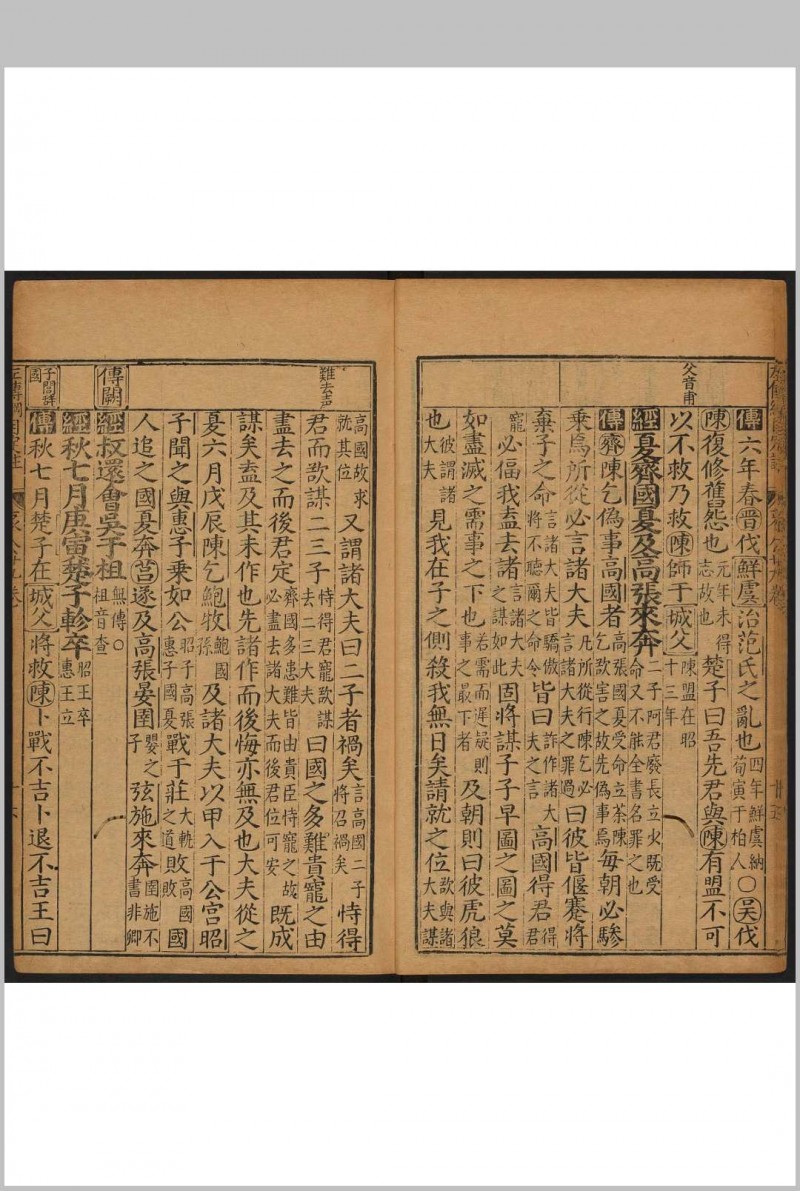 傳六年春晉伐鮮虞治范氏之亂也四年鮮虞納荀寅于柏人○吳伐
陳復修舊怨也元年未得志故也楚子曰吾先君與陳有盟不可
父音甫
以不救乃救陳師于城父陳盟在昭十三年
經夏齊國夏及高張來奔二子阿君廢長立少既受命又不能全書名罪之也
傳齊陳乞偽事高國者高張國夏受命立荼陳乞欲害之故先偽事焉每朝必驂
乘焉所從必言諸大夫凡所從行陳乞必言諸大夫之罪過曰彼皆偃蹇將
棄子之命言諸大夫皆驕傲將不聽爾之命令皆曰詐作諸大夫之言高國得君得君
寵必偪我盍去諸言諸大夫之謀如此固將謀子子早圖之圖之莫
如盡滅之需事之下也若需而遲疑則事之最下者及朝則曰彼虎狼
也彼謂諸大夫見我在子之側殺我無日矣請就之位欲與諸大夫謀
高國故求就其位又謂諸大夫曰二子者禍矣言高國二子將召禍矣恃得
難去声
君而欲謀二三子恃得君寵欲謀去二三大夫曰國之多難貴寵之由
盡去之而後君定齊國多患難皆由貴臣恃寵之故必盡去諸大夫而後君位可安既成
謀矣盍及其未作也先諸作而後悔亦無及也大夫從之
夏六月戊辰陳乞鮑牧鮑國孫及諸大夫以甲入于公宮昭
子聞之與惠子乘如公昭子高張惠子國夏戰于莊大軌之道敗高國敗國
人追之國夏奔莒遂及高張晏圉嬰之子弦施來奔圉施不書非卿
傳闕
經叔還會吳于柤無傳○柤音查
經秋七月庚寅楚子軫卒昭王卒惠王立
傳秋七月楚子在城父將救陳卜戰不吉卜退不吉王曰